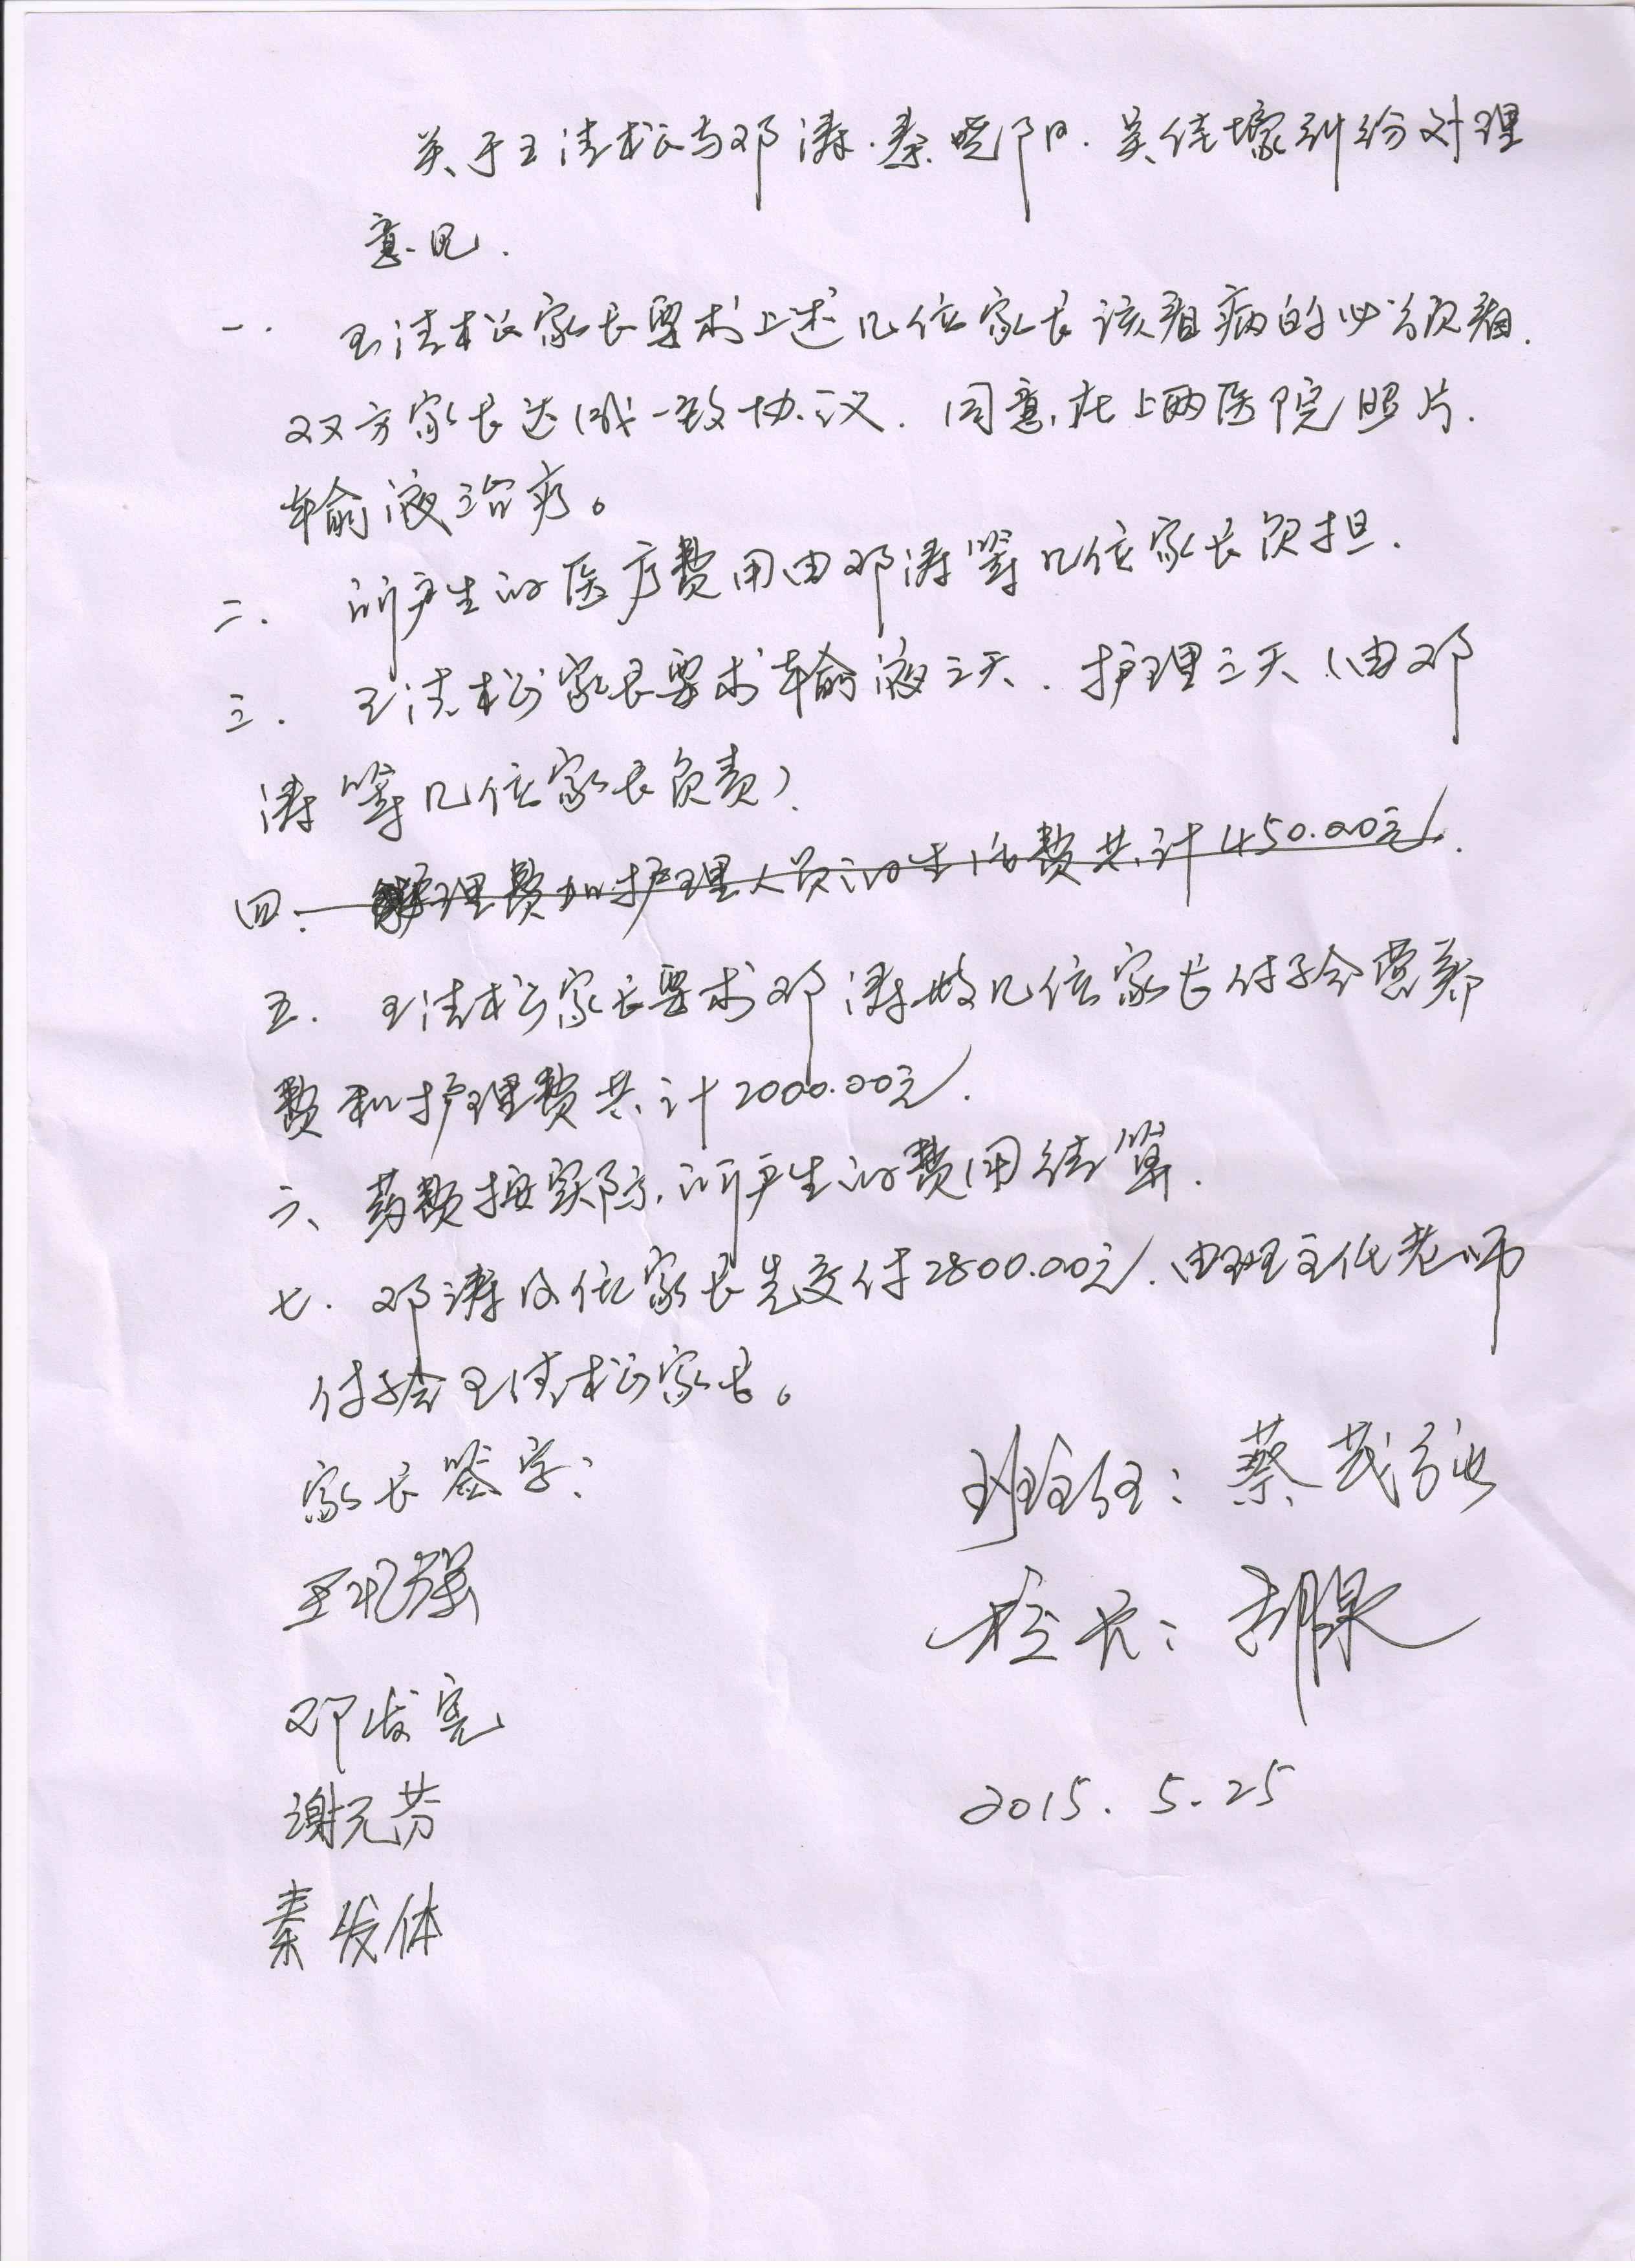 关于王清松与邓涛.秦晓阳.吴佳壕纠纷处理
意见.
一. 王清松家长要求上述几位家长该看病的必须看.
双方家长达成一致协议.同意在上两医院照片.
输液治疗。
二. 所产生的医疗费用由邓涛等几位家长负担.
三. 王清松家长要求输液三天.护理三天(由邓
涛等几位家长负责)
四. 护理费和护理人员的生活费共计450.00元.
五. 王清松家长要求邓涛等几位家长付给营养
费和护理费共计2000.00元.
六、药费按实际所产生的费用结算.
七. 邓涛几位家长先交付2800.00元.由班主任老师
付给王清松家长。
家长签字:
班主任:蔡茂
王强
校长:胡果
邓发亮
谢元芬
2015.5.25
秦发体